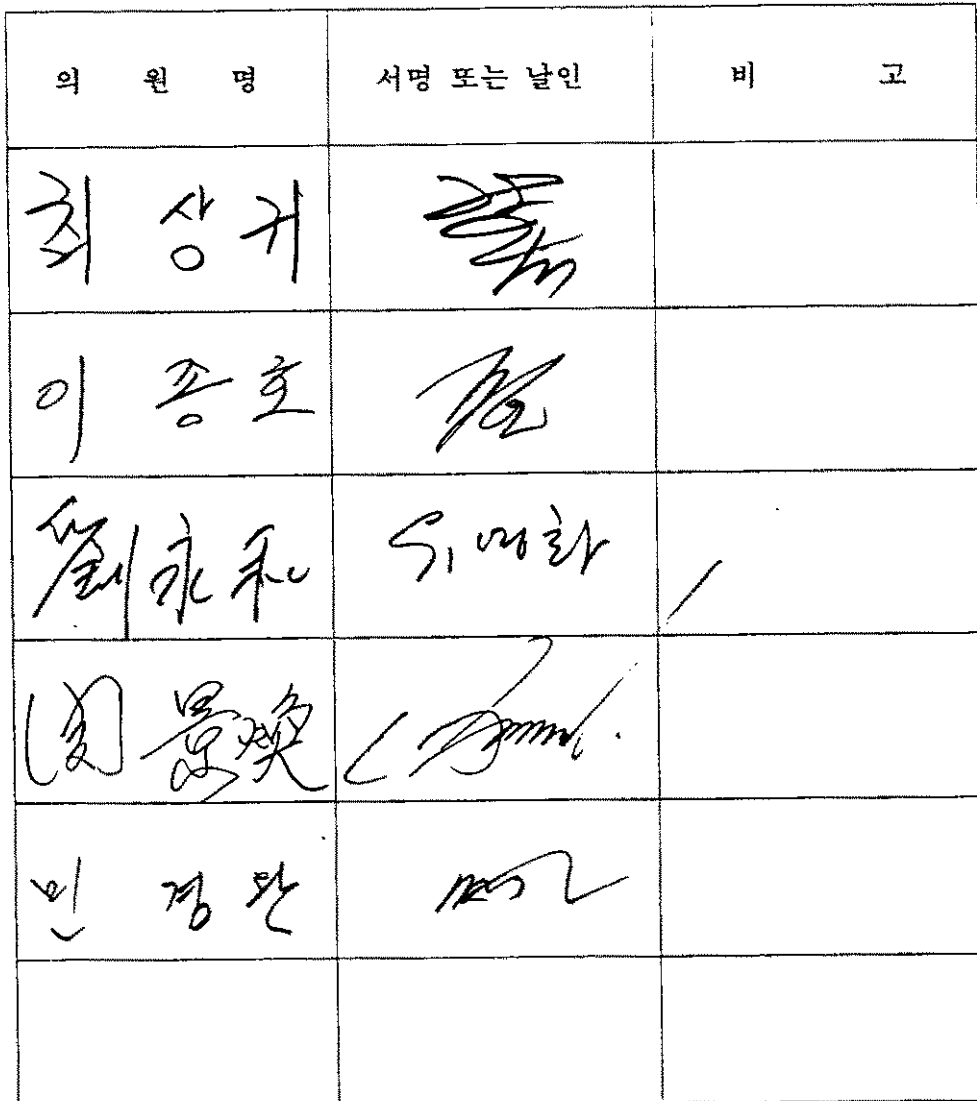 의 원 명 서명 또는 날인 비 고
최 상 귀
이 종 호
劉 永 和 유영화
閔 景 煥
민 경 완